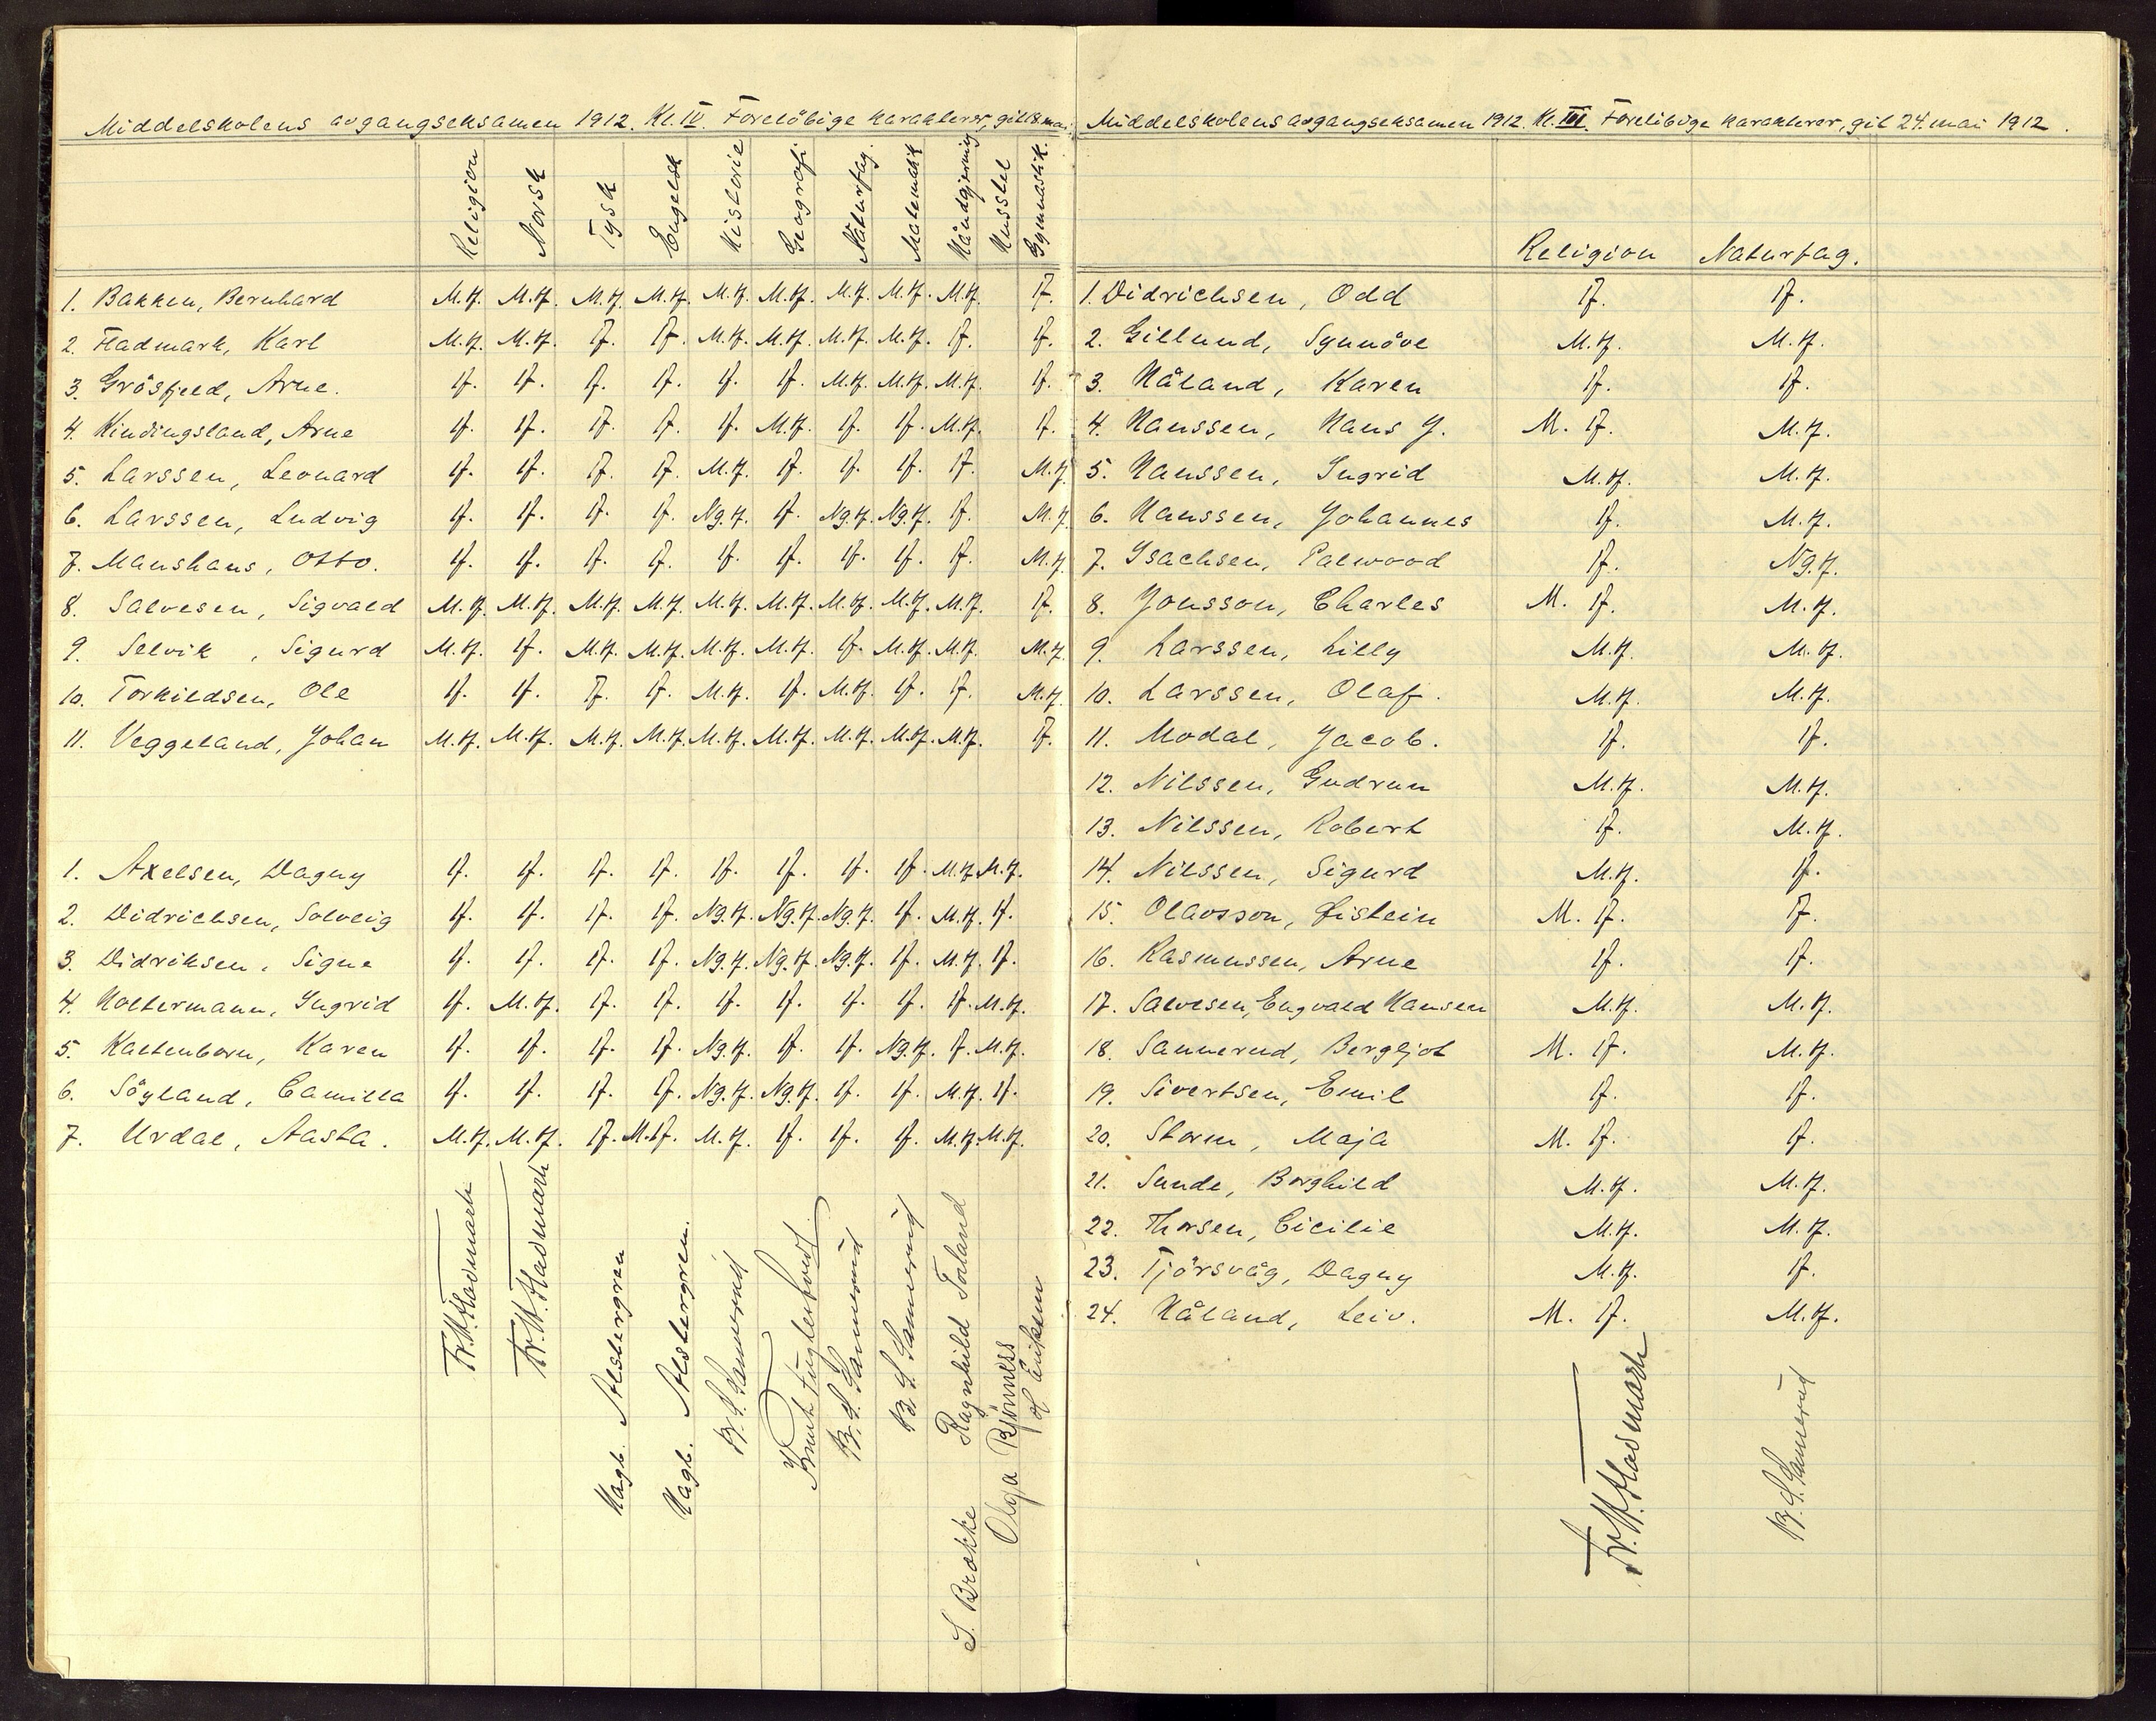 Middelskolens avgangseksamen 1912. Kl. IV. Forelöbige karakterer, git 18 mai.
Religion Norsk Tysk Engelsk Historie Geografi Naturfag. Matematik Håndgjerning Husstel Gymnastik.
1. Bakken, Bernhard M.tf. M.tf. M.tf. M.tf. M.tf. M.tf. M.tf. M.tf. M.tf. tf.
2. Fladmark, Karl M.tf. M.tf. tf. tf. M.tf. M.tf. M.tf. M.tf. tf. tf.
3. Grösfjeld, Arne. tf. tf. tf. tf. tf. tf. M.tf. M.tf. M.tf. tf.
4. Hindingsland, Arne tf. tf. tf. tf. tf. M.tf. tf. tf. M.tf. tf.
5. Larssen, Leonard tf. tf. tf. tf. M.tf. tf. tf. tf. tf. M.tf.
6. Larssen, Ludvig tf. tf. tf. tf. Ng.tf. tf. Ng.tf. Ng.tf. tf. M.tf.
7. Maushaus, Otto. tf. tf. tf. tf. tf. tf. tf. tf. tf. M.tf.
8. Salvesen, Sigvald M.tf. M.tf. M.tf. M.tf. M.tf. M.tf. M.tf. M.tf. M.tf. tf.
9. Selvik, Sigurd M.tf. tf. M.tf. M.tf. M.tf. M.tf. tf. M.tf. M.tf. M.tf.
10. Torkildsen, Ole tf. tf. tf. tf. M.tf. tf. M.tf. tf. tf. M.tf.
11. Veggeland, Johan M.tf. M.tf. M.tf. M.tf. M.tf. M.tf. M.tf. M.tf. M.tf. tf.
1. Axelsen, Dagny tf. tf. tf. tf. tf. tf. tf. tf. M.tf. M.tf.
2. Didrichsen, Solveig tf. tf. tf. tf. Ng.tf. Ng.tf. Ng.tf. tf. M.tf. tf.
3. Didriksen, Signe tf. tf. tf. tf. Ng.tf. Ng.tf. Ng.tf. tf. M.tf. tf.
4. Holtermann, Ingrid tf. M.tf. tf. tf. tf. tf. tf. tf. tf. M.tf.
5. Kaltenborn, Karen tf. tf. tf. tf. Ng.tf. tf. tf. Ng.tf. tf. M.tf.
6. Söyland, Camilla tf. tf. tf. tf. Ng.tf. Ng.tf. tf. tf. M.tf. tf.
7. Urdal, Aasta. M.tf. M.tf. tf. M.tf. M.tf. tf. tf. tf. M.tf. M.tf.
Fr. W. Fladmark
Fr. W. Fladmark
Hagb. Alstergren
Hagb. Alstergren.
B. S. Sannerud
Knut Fuglestvedt.
B. S. Sannerud
B. S. Sannerud
S. Brokke Ragnhild Torland
Olga Bjørness
Eriksen
Middelskolens avgangseksamen 1912. Kl. III. Forelöbige karakterer, git 24. mai 1912.
Religion Naturfag.
1. Didrichsen, Odd tf. tf.
2. Gillund, Synnöve M.tf. M.tf.
3. Håland, Karen tf. tf.
4. Hanssen, Hans J. M. tf. M.tf.
5. Hanssen, Ingrid M.tf. M.tf.
6. Hanssen, Johannes tf. M.tf.
7. Isachsen, Palwood tf. Ng.tf.
8. Jonsson, Charles M. tf. M.tf.
9. Larssen, Lilly M.tf. M.tf.
10. Larssen, Olaf. M.tf. M.tf.
11. Modal, Jacob. tf. tf.
12. Nilssen, Gudrun M.tf. M.tf.
13. Nilssen, Robert tf. M.tf.
14. Nilssen, Sigurd M.tf. tf.
15. Olavsson, Eistein M. tf. tf.
16. Rasmussen, Arne tf. tf.
17. Salvesen, Engvald Hansen M.tf. M.tf.
18. Sannerud, Bergljot M. tf. M.tf.
19. Sivertsen, Emil tf. tf.
20. Storm, Maja M. tf. tf.
21. Sunde, Borghild M.tf. M.tf.
22. Thorsen, Cicilie M.tf. M.tf.
23. Tjörsvåg, Dagny M.tf. tf.
24. Håland, Leiv. M. tf. M.tf.
Fr. W. Fladmark
B. S. Sannerud